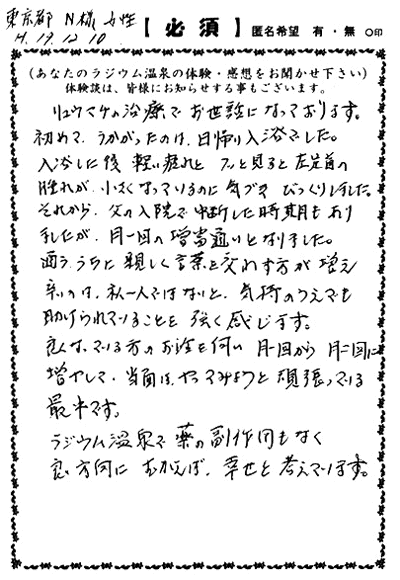 東京都 N様 女性
H.19.12.10
【必須】 匿名希望 有・無 ○印
(あなたのラジウム温泉の体験・感想をお聞かせ下さい)
体験談は、皆様にお知らせする事もございます。
リュウマチの治療でお世話になっております。
初めて、うかがったのは、日帰り入浴でした。
入浴した後 軽い疲れと フッと見ると左足首の
腫れが、小さくなっているのに気づき びっくりしました。
それから、父の入院で中断した時期もあり
ましたが、月一回の増富通いとなりました。
通ううちに親しく言葉を交わす方が増え
辛いのは、私一人ではないと、気持のうえでも
助けられていることを強く感じます。
良くなっている方のお話を伺い 月一回から月二回に
増やして、当面は、やってみようと頑張っている
最中です。
ラジウム温泉で薬の副作用もなく
良い方向に むかえば、幸せと考えています。